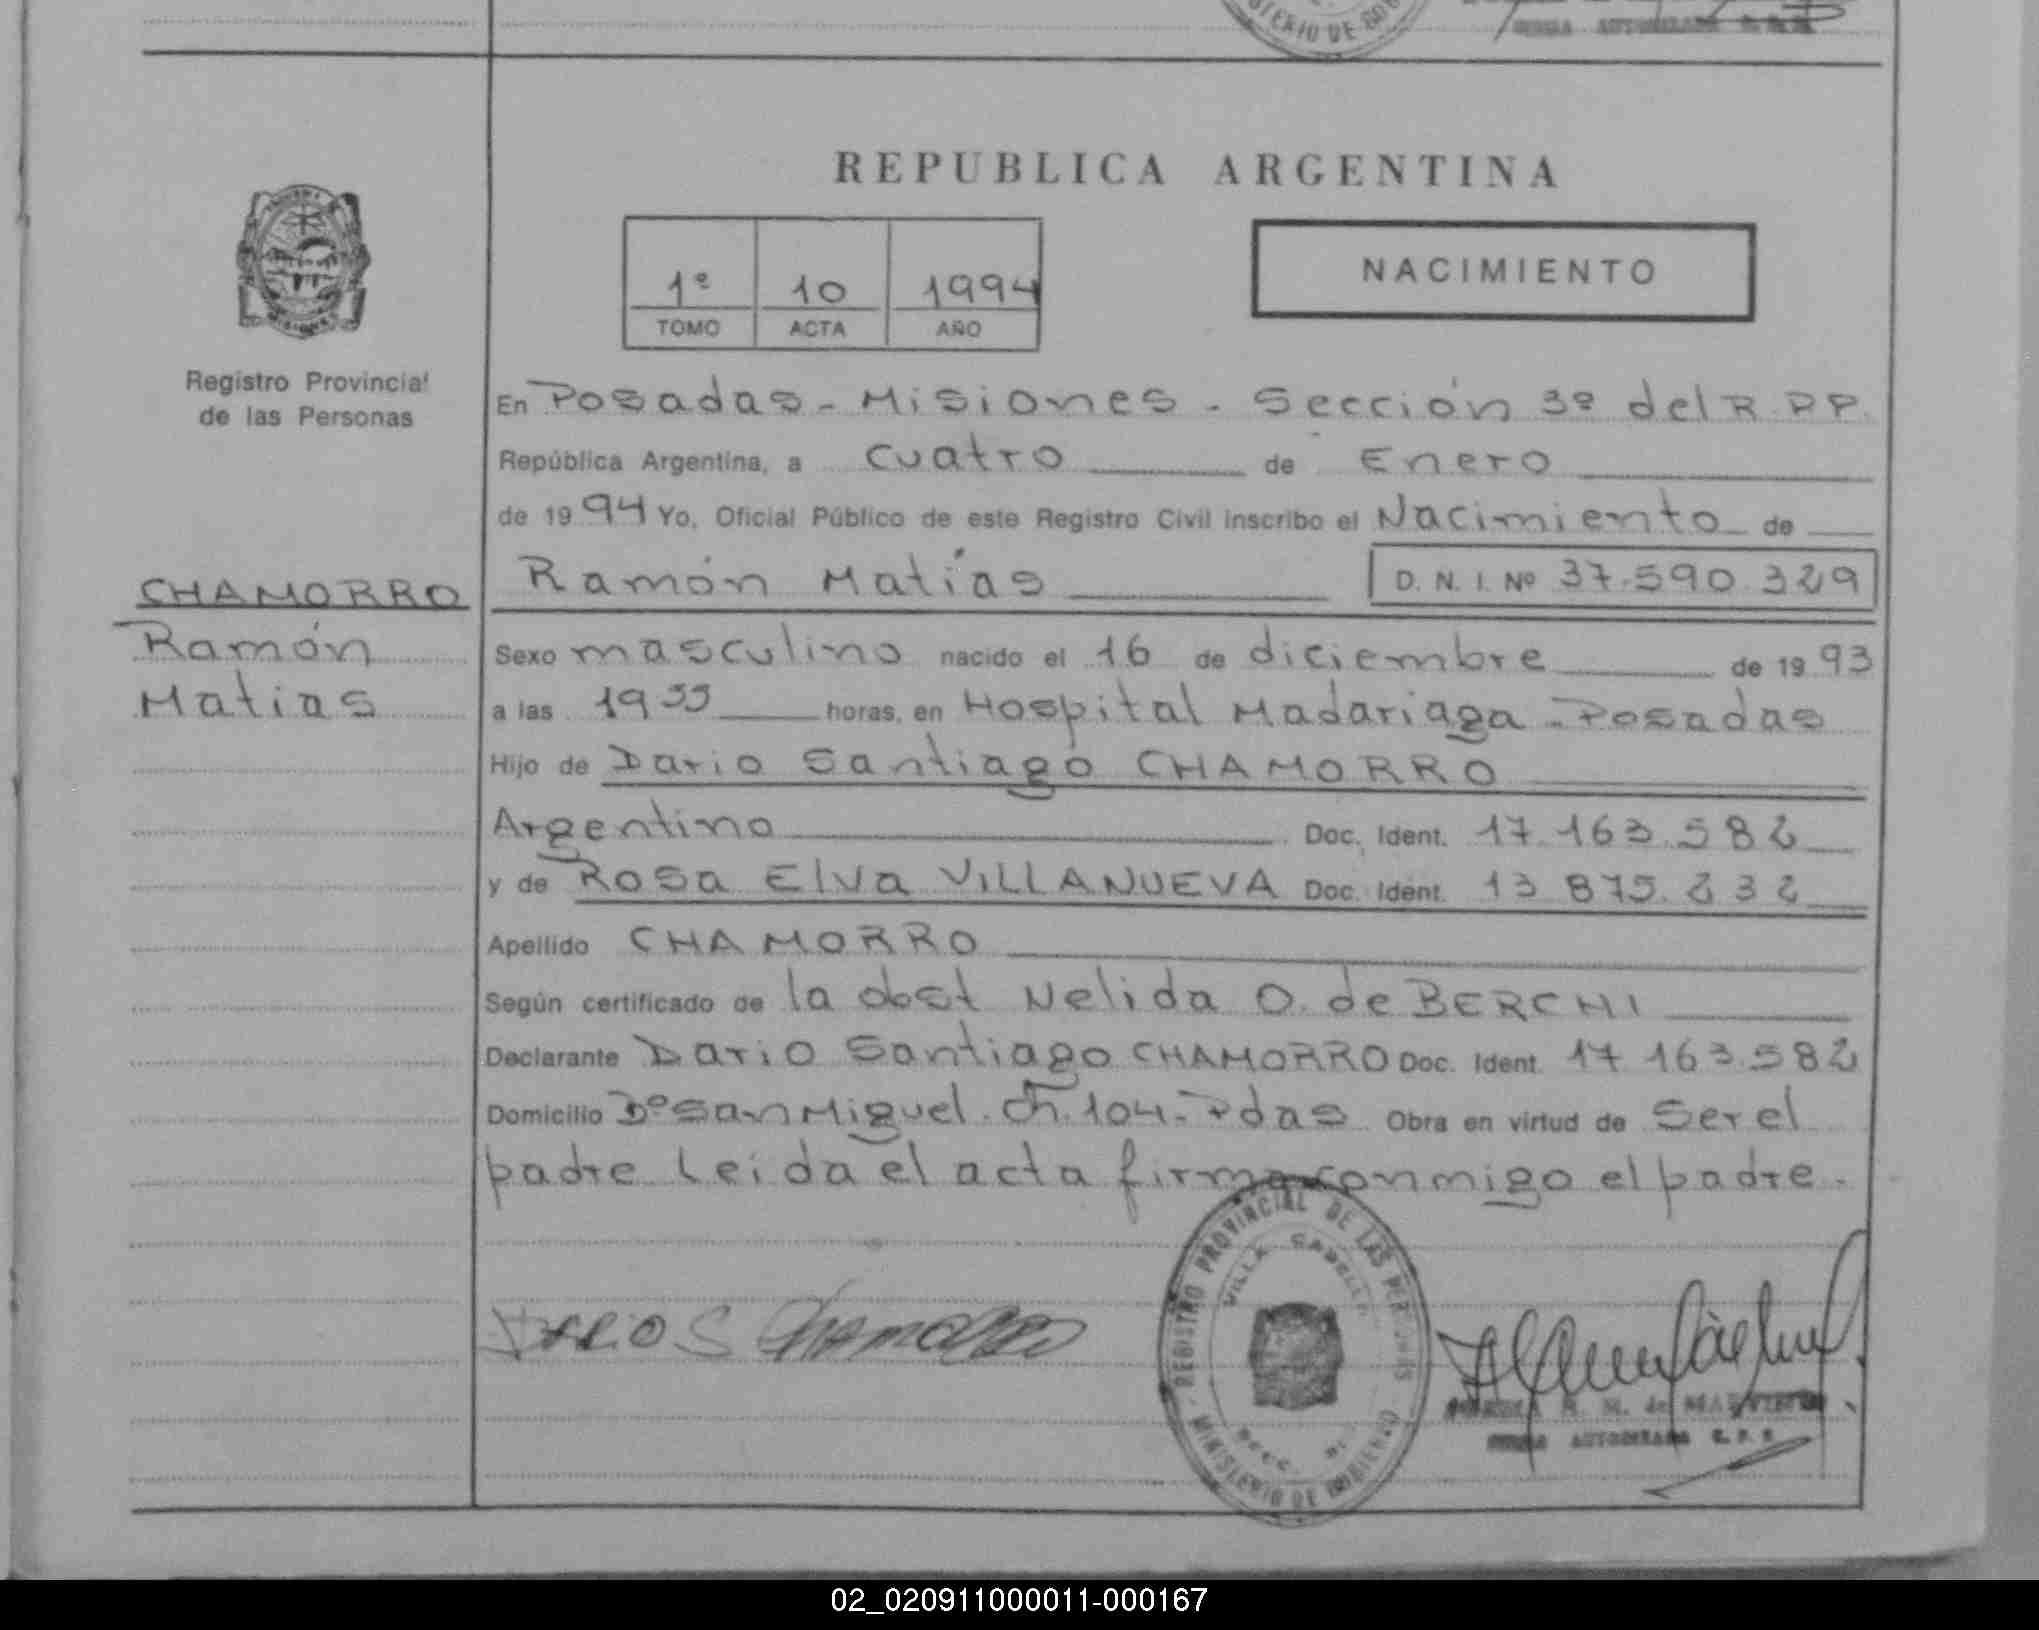 REPUBLICA ARGENTINA
1º 10 1994
TOMO ACTA AÑO
NACIMIENTO
Registro Provincial
de las Personas
En Posadas - Misiones - Sección 3º del R.P.P.
República Argentina, a cuatro de Enero
de 1994 Yo, Oficial Público de este Registro Civil inscribo el Nacimiento de
Ramón Matías D. N. I. Nº 37.590.329
CHAMORRO
Ramón
Matias
Sexo masculino nacido el 16 de diciembre de 1993
a las 19 55 horas, en Hospital Madariaga - Posadas
Hijo de Dario Santiago CHAMORRO
Argentino Doc. Ident. 17.163.582
y de Rosa Elva VILLANUEVA Doc. Ident. 13 875.232
Apellido CHAMORRO
Según certificado de la obst Nelida O. de BERCHI
Declarante Dario Santiago CHAMORRO Doc. Ident. 17 163.582
Domicilio Bº San Miguel. Ch. 104 - Pdas Obra en virtud de Ser el
padre Leida el acta firma conmigo el padre.
REGISTRO PROVINCIAL DE LAS PERSONAS
VILLA CABELLO
MINISTERIO DE GOBIERNO
Dario S Chamorro
02_020911000011-000167